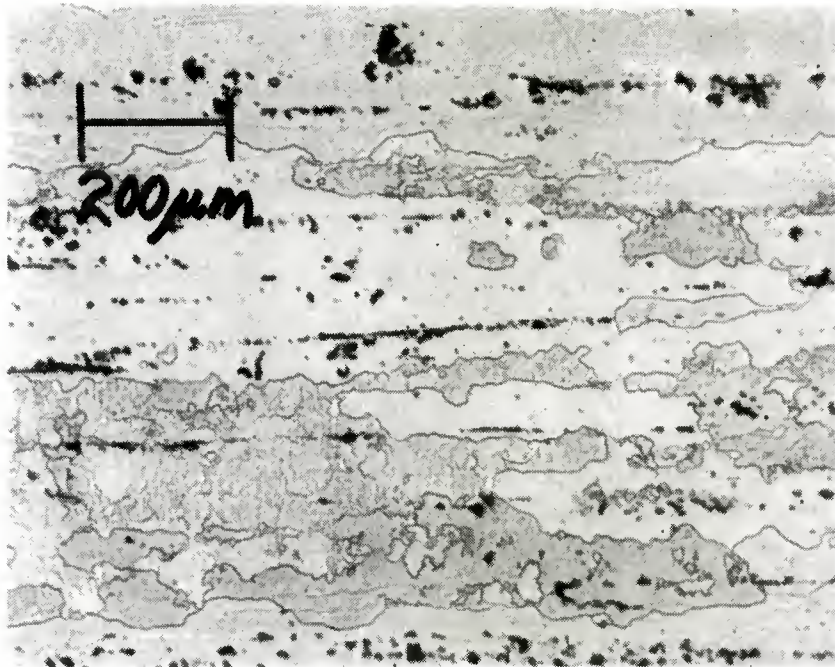 200μm